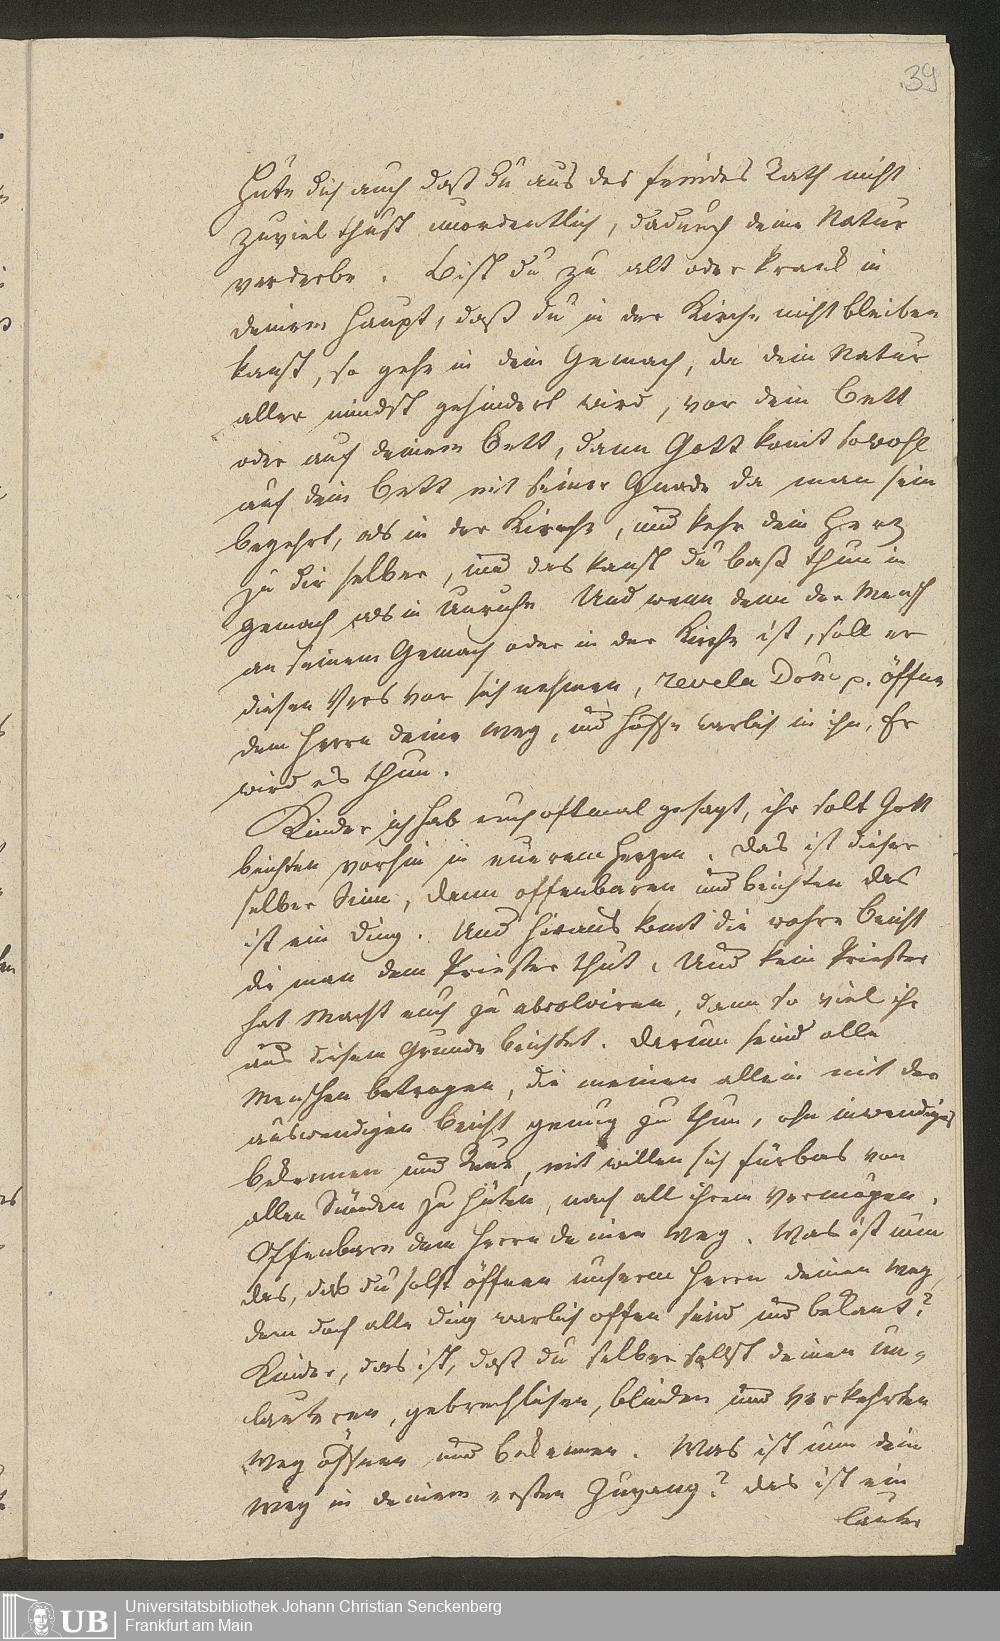 39
Hüte dich auch daß du aus des feindes Rath nicht
zuviel thust unordentlich, dadurch deine Natur
verderbe. Bist du zu alt oder kranck in
deinem Haupt, daß du in der Kirche nicht bleiben
kanst, so gehe in dein Gemach, da dein Natur
aller mindst gehindert wird, vor dein Bett
oder auf deinem Bett, dann Gott komt sowohl
auf dein Bett mit seiner Gnade da man sein
begehrt, als in der Kirche, und kehr dein Hertz
zu dir selber, und das kanst du baß thun in
gemach als in Unruhe Und wenn denn der Mensch
an seinem Gemach oder in der Kirche ist, soll er
diesen Vers vor sich nehmen, revela Domi p. öffne
dem Herrn deine weg, und hoffe warlich in ihn, Er
wird es thun.
Kinder ich hab euch oftmal gesagt, ihr solt Gott
beichten vorhin in eurem Hertzen. Das ist dieser
selber Sinn, denn offenbaren und beichten das
ist ein Ding. Und hieraus komt die wahre beicht
die man dem Priester thut. Und kein Priester
hat Macht euch zu absolviren, dann so viel ihr
aus diesem Grunde beichtet. Darum seind alle
Menschen betrogen, die meinen allein mit der
auswendigen beicht genug zu thun, ohn inwendiges
bekennen und Reue, mit willen sich fürbas von
allen Sünden zu hüten, nach all ihrem vermögen.
Offenbare dem Herrn deinen weg. Was ist nun
das, das du solst öffnen unserm Herrn deinen weg,
dem doch alle ding warlich offen seind und bekant?
Kinder, das ist, daß du selber solst deinen un-
lauteren, gebrechlichen, blinden und verkehrten
weg öffnen und bekennen. Was ist nun dein
weg in deinem ersten Zugang? das ist ein
lauter
UB
Universitätsbibliothek Johann Christian Senckenberg
Frankfurt am Main